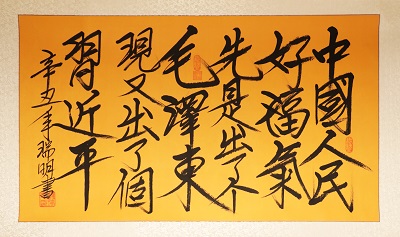 中國人民
好福氣
先是出了个
毛澤東
現又出了個
習近平
辛丑年瑞明書